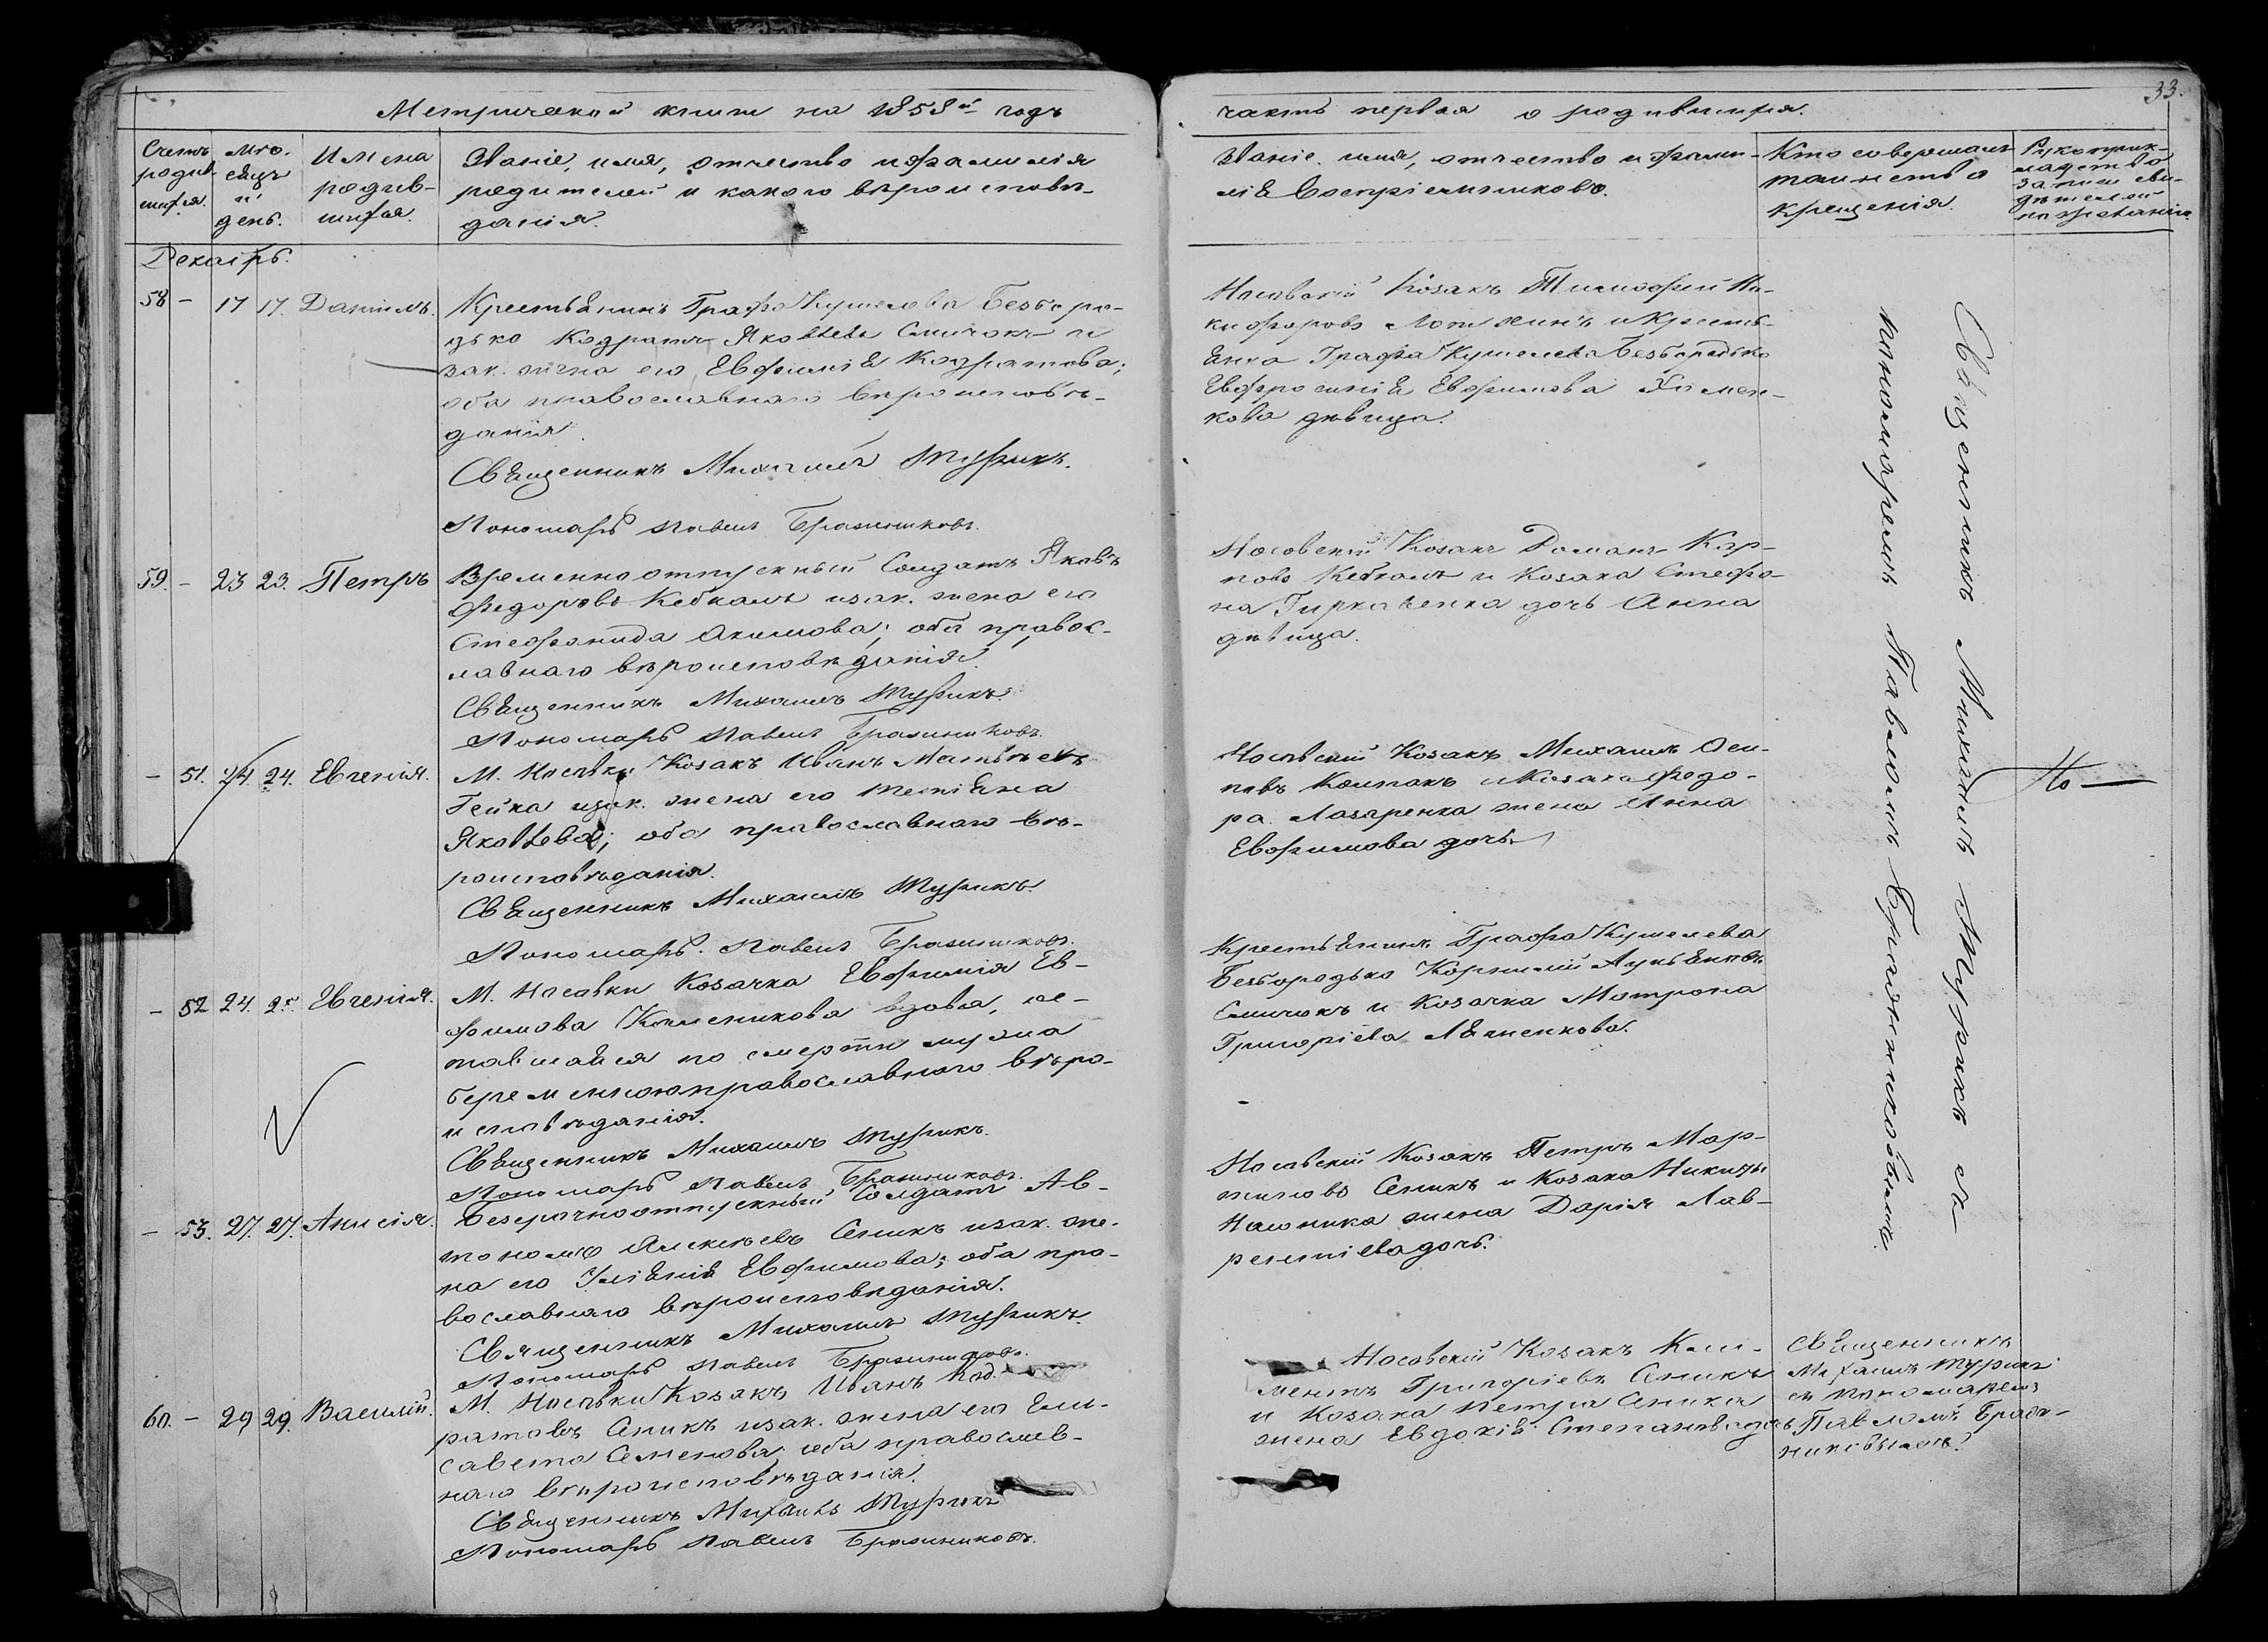 33.
Метрической книги на 1858й годъ
часть первая о родившихся.
Счетъ родив- шихся.
Мѣ- сяцъ и день.
Имена родив- шихся.
Званіе, имя, отчество и фамилія
родителей и какого вѣроисповѣ-
данія.
Званіе, имя, отчество и фами-
лія Воспріемниковъ.
Кто совершалъ
таинство
крещенія.
Рукоприк-
ладство
записи сви-
дѣтелей
по желанію.
Декабрь.
58 - 17 17. Даніилъ.
Крестьянинъ Графа Кушелева Безборо-
дько Кодратъ Яковлевъ Смичокъ и
зак. жена его Евфимія Кодратова;
оба православнаго вѣроисповѣ-
данія.
Священникъ Михаилъ Турикъ.
Пономарь Павелъ Бражниковъ.
Носовскій Козакъ Тимофей Ни-
кифоровъ и Кресть-
янка Графа Кушелева Безбородько
Евфросинія Евфимова Хомен-
кова дѣвица.
59. - 23 23. Петръ
Временноотпускный Солдатъ Яковъ
Федоровъ Кебкалъ изак. жена его
Стефанида Акимова; оба правос-
лавнаго вѣроисповѣданія.
Священникъ Михаилъ Турикъ.
Пономарь Павелъ Бражниковъ.
Носовскій Козакъ Романъ Кар-
повъ Кебкалъ и Козака Стефа-
на дочь Анна
дѣвица.
- 51. 24 24. Евгенія.
М. Носовки Козакъ Иванъ Матвѣевъ
Гейка изак. жена его Татіяна
Яковлева; оба православнаго вѣ-
роисповѣданія.
Священникъ Михаилъ Турикъ.
Пономарь. Павелъ Бражниковъ.
Носовскій Козакъ Михаилъ Оси-
повъ и Козака Федо-
ра Лазаренка жена Анна
Евфимова дочь.
- 52 24. 25. Евгенія.
М. Носовки Козачка Евфимія Ев-
фимова вдова, ос-
тавшаяся по смерти мужа
беременною православнаго вѣро-
исповѣданія.
Священникъ Михаилъ Турикъ.
Пономарь Павелъ Бражниковъ.
Крестьянинъ Графа Кушелева
Безбородько Корнилій Лукьяновъ
Смичокъ и Козачка Матрона
Григоріева Ляшенкова.
- 53. 27. 27. Анисія.
Безсрочноотпускный Солдатъ Ав-
тономъ Алексѣевъ Сникъ изак. же-
на его Уліянія Евфимова; оба пра-
вославнаго вѣроисповѣданія.
Священникъ Михаилъ Турикъ.
Пономарь Павелъ Бражниковъ.
Носовскій Козакъ Петръ Мар-
тиновъ Сникъ и Козака Никиты
жена Дарія Лав-
рентіева дочь.
60. - 29 29. Василій.
М. Носовки Козакъ Иванъ Код-
ратовъ Сникъ изак. жена его Ели-
савета Семенова; оба православ-
наго вѣроисповѣданія.
Священникъ Михаилъ Турикъ
Пономарь Павелъ Бражниковъ.
Носовскій Козакъ Кли-
ментъ Григоріевъ Сникъ
и Козака Петра Сника
жена Евдокія Степанова дочь
Священникъ
Михаилъ Турикъ
съ пономаремъ
Павломъ Браж-
никовымъ.
Священникъ Михаилъ Турикъ съ
пономаремъ Павломъ Бражниковымъ.